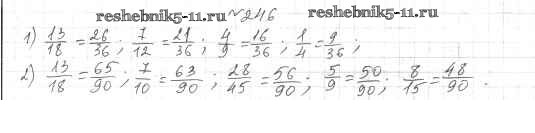 reshebnik5-11.ru №246 reshebnik5-11.ru
1) 13/18 = 26/36; 7/12 = 21/36; 4/9 = 16/36; 1/4 = 9/36;
2) 13/18 = 65/90; 7/10 = 63/90; 28/45 = 56/90; 5/9 = 50/90; 8/15 = 48/90.